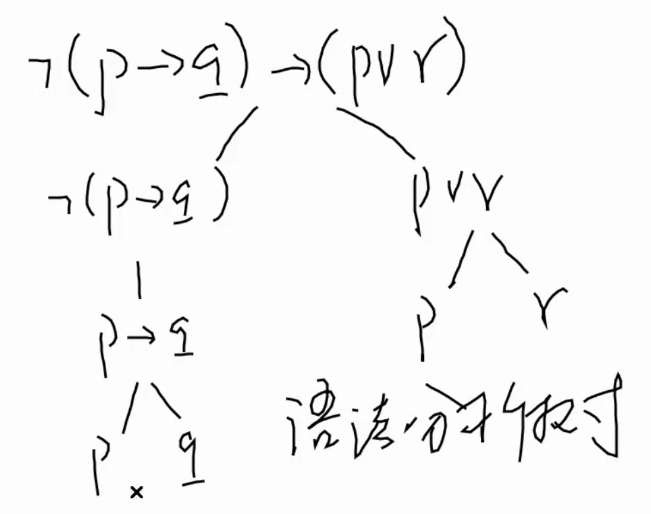 ¬(p→q)→(p∨r)
¬(p→q) p∨r
p→q p r
p q 语法分析树